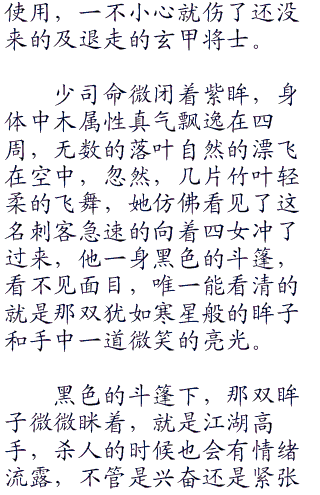 使用，一不小心就伤了还没
来的及退走的玄甲将士。
少司命微闭着紫眸，身
体中木属性真气飘逸在四
周，无数的落叶自然的漂飞
在空中，忽然，几片竹叶轻
柔的飞舞，她仿佛看见了这
名刺客急速的向着四女冲了
过来，他一身黑色的斗篷，
看不见面目，唯一能看清的
就是那双犹如寒星般的眸子
和手中一道微笑的亮光。
黑色的斗篷下，那双眸
子微微眯着，就是江湖高
手，杀人的时候也会有情绪
流露，不管是兴奋还是紧张